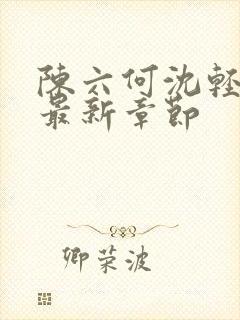 陳六何沈輕
最新章節
卿荣波